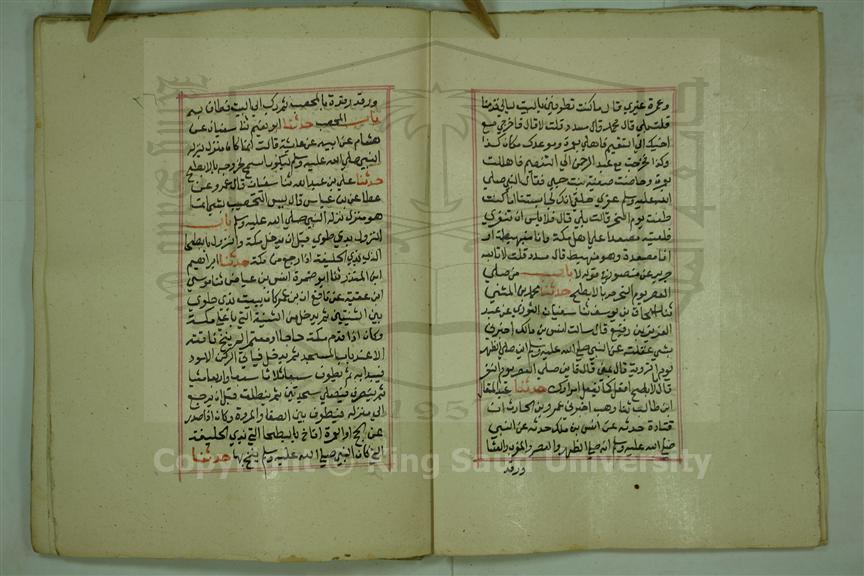 وعمرة غيري قال ما كنت تطوفين بالبيت ليالي قدمنا
قلت بلي قال محمد قال مسدد قلت لا قال فاخرجي مع
اخيك الي التنعيم فاهلي بعمرة وموعدك مكان كذا
وكذا فخرجت مع عبد الرحمن الي التنعيم فاهللت
بعمرة وحاضت صفية بنت حيي فقال النبي صلي
الله عليه وسلم عقري حلقي انك لحابستنا اما كنت
طفت يوم النحر قالت بلي قال فلا باس انفري
فلقيته مصعدا علي اهل مكة وانا منهبطة او
انا مصعدة وهو منهبط قال مسدد قلت لا تابعه
جرير عن منصور في قوله لا باب من صلي
العصر يوم النحر بالابطح حدثنا محمد بن المثني
ثنا اسحاق بن يوسف ثنا سفيان الثوري عن عبد
العزيز بن رفيع قال سالت انس بن مالك اخبرني
بشي عقلته عن النبي صلي الله عليه وسلم اين صلي الظهر
يوم التروية قال بمني قال فاين صلي العصر يوم النفر
قال بالابطح افعل كما يفعل امراوك حدثنا عبد المتعال
ابن طالب ثنا ابن وهب اخبرني عمرو بن الحارث ان
قتادة حدثه عن انس بن ملك حدثه عن النبي
صلي الله عليه وسلم انه صلي الظهر والعصر والمغرب والعشا
ورقد
ورقد رقدة بالمحصب ثم ركب الي البيت فطاف به
باب المحصب حدثنا ابو نعيم ثنا سفيان عن
هشام عن ابيه عن عائشة قالت انما كان منزل ينزله
النبي صلي الله عليه وسلم ليكون اسمح لخروجه بالابطح
حدثنا علي بن عبد الله ثنا سفيان قال عمرو عن
عطا عن بن عباس قال ليس التحصيب بشي انما
هو منزل نزله النبي صلي الله عليه وسلم باب
النزول بذي طوي قبل ان يدخل مكة والنزول بالبطحا
الذي بذي الحليفة اذا رجع من مكة حدثنا ابراهيم
ابن المنذر ثنا ابو ضمرة انس بن عياض ثنا موسي
ابن عقبة عن نافع ان بن عمر كان يبيت بذي طوي
بين الثنيتين ثم يدخل من الثنية التي باعلي مكة
وكان اذا قدم مكة حاجا او معتمرا لم ينخ ناقته
الا عند باب المسجد ثم يدخل فياتي الركن الاسود
فيبدا به ثم يطوف سبعا ثلاثا سعيا واربعا مشيا
ثم ينصرف فيصلي سجدتين ثم ينطلق قبل ان يرجع
الي منزله فيطوف بين الصفا والمروة وكان اذا صدر
عن الحج او العمرة اناخ بالبطحا التي بذي الحليفة
التي كان النبي صلي الله عليه وسلم ينيخ بها حدثنا
1957
Copyright © King Saud University